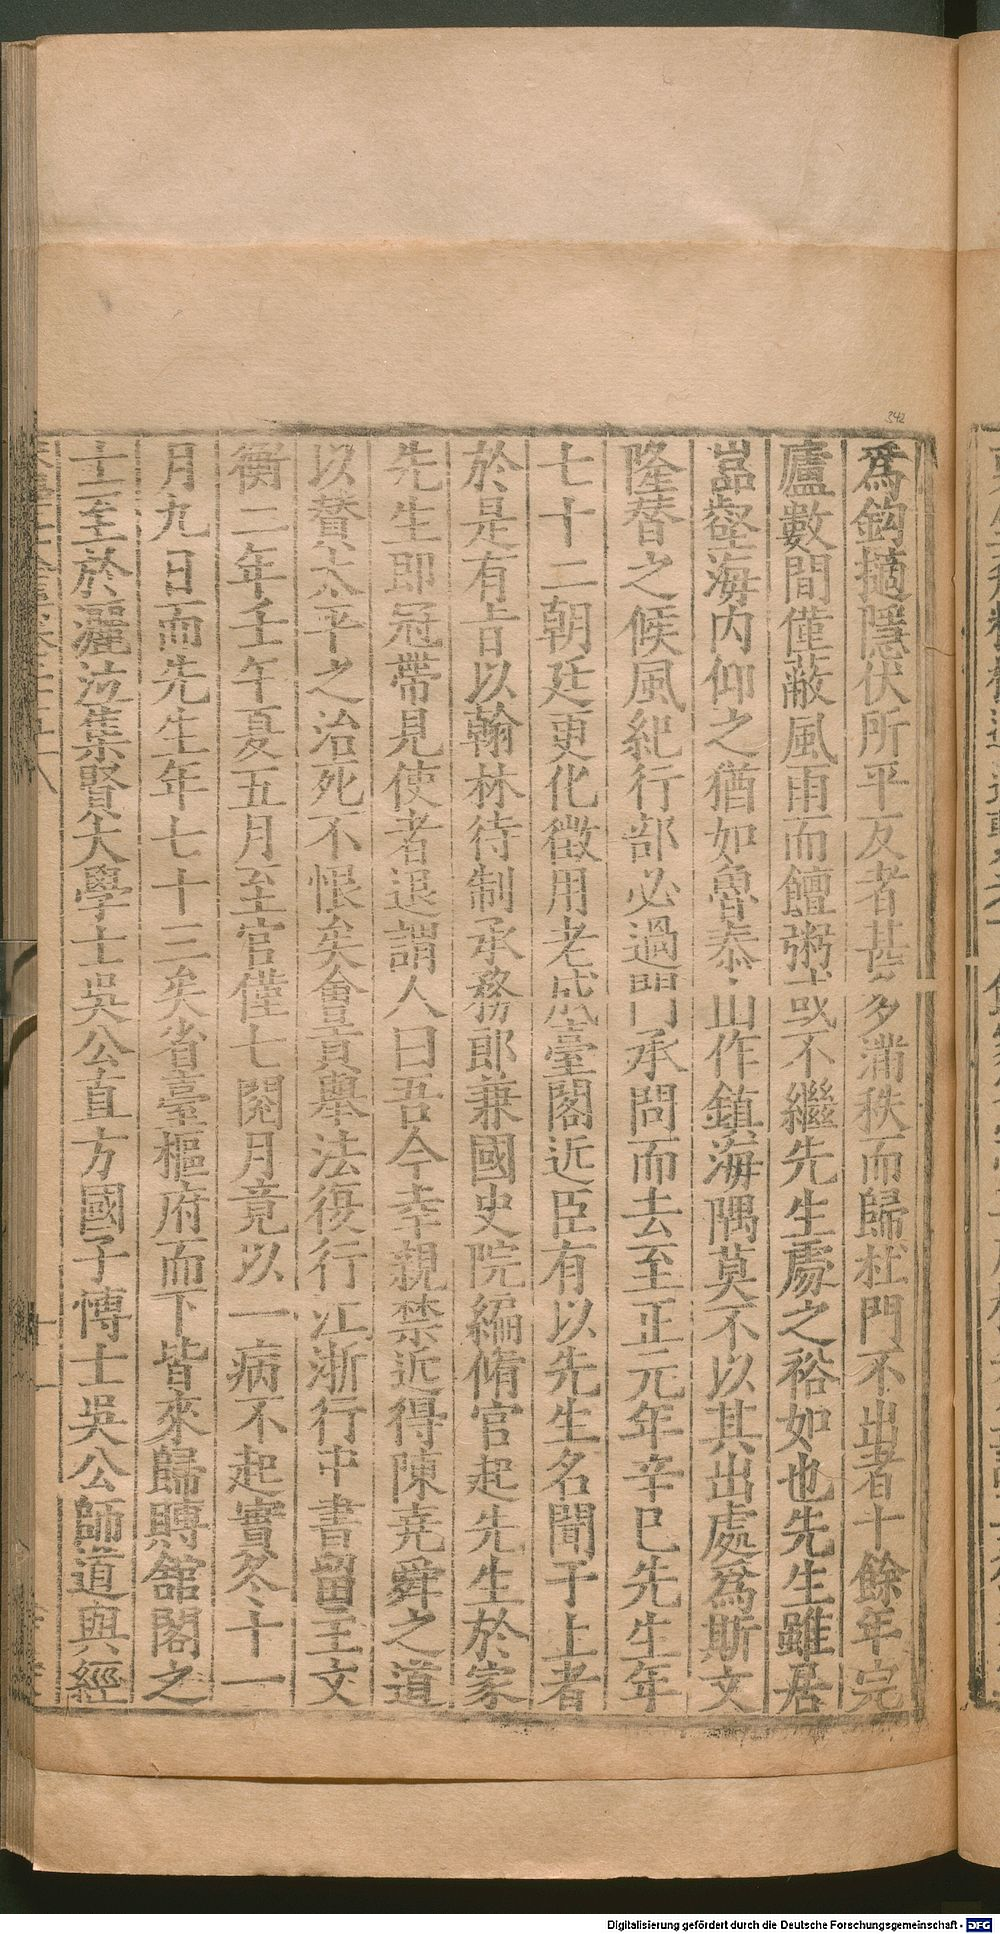 爲鈎擿隱伏所平反者甚多滿秩而歸杜門不出者十餘年完
廬數間僅蔽風雨而饘粥或不繼先生處之裕如也先生雖居
嵓壑海内仰之猶如魯泰山作鎮海隅莫不以其出處爲斯文
隆替之候風紀行部必過門承問而去至正元年辛巳先生年
七十二朝廷更化徵用老成臺閣近臣有以先生名聞于上者
於是有旨以翰林待制承務郎兼國史院編脩官起先生於家
先生即冠帶見使者退謂人曰吾今幸親禁近得陳堯舜之道
以賛太平之治死不恨矣會貢舉法復行江浙行中書留主文
衡二年壬午夏五月至官僅七閱月竟以一病不起實冬十一
月九日而先生年七十三矣省臺樞府而下皆來歸賻舘閣之
士至於灑泣集賢大學士吳公直方國子愽士吳公師道與經
342
Digitalisierung gefördert durch die Deutsche Forschungsgemeinschaft - DFG